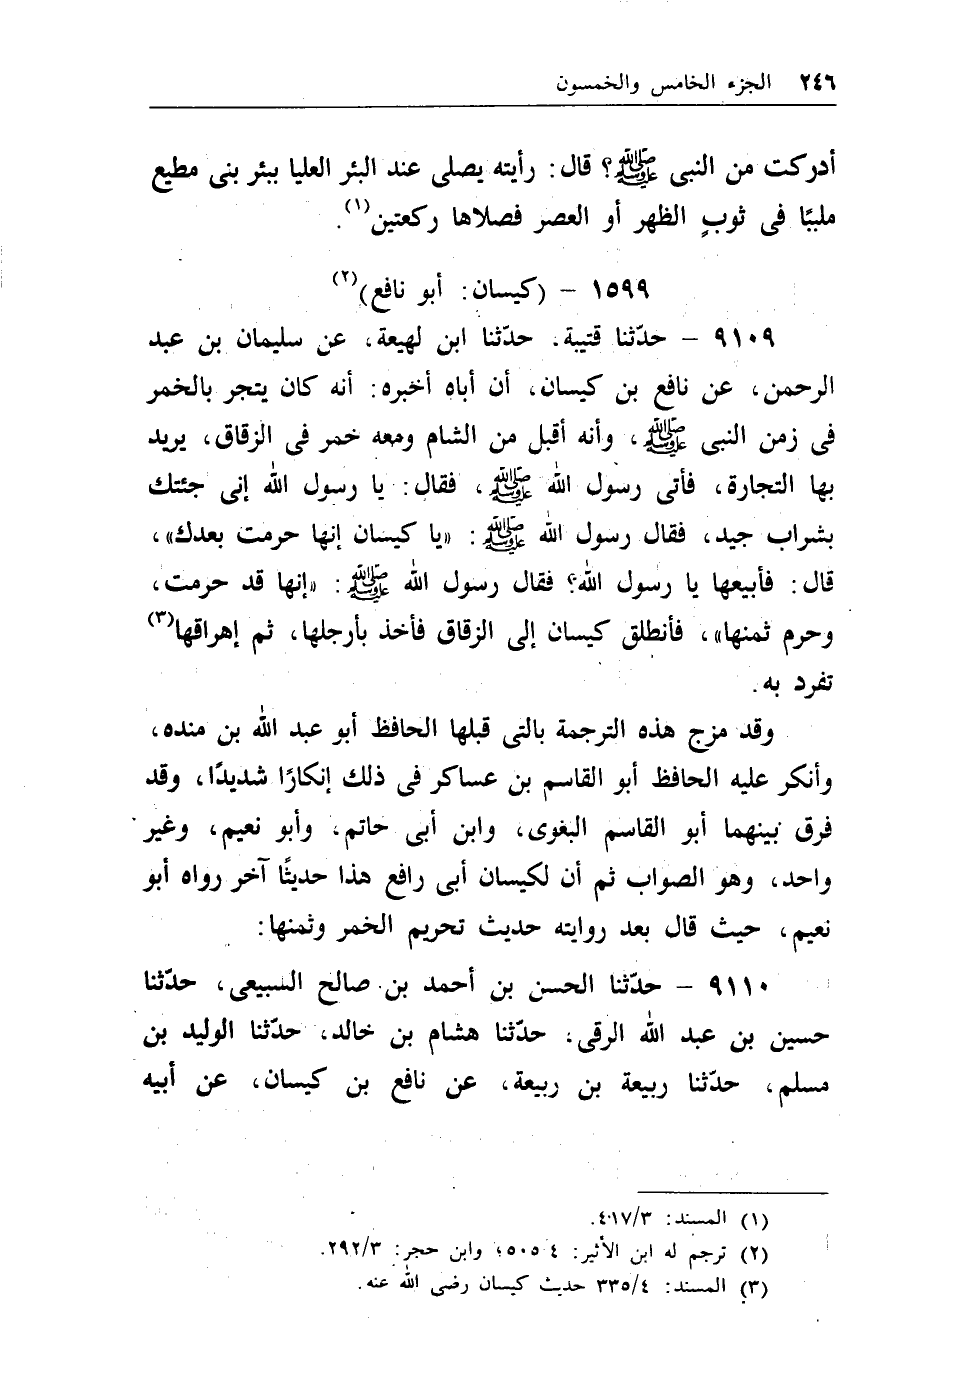 ٢٤٦ الجزء الخامس والخمسون
أدركت من النبى ﷺ؟ قال: رأيته يصلى عند البئر العليا ببئر بنى مطيع
ملببًا فى ثوبٍ الظهر أو العصر فصلاها ركعتين(١).
١٥٩٩ - (كيسان: أبو نافع)(٢)
٩١٠٩ - حدّثنا قتيبة، حدّثنا ابن لهيعة، عن سليمان بن عبد
الرحمن، عن نافع بن كيسان، أن أباه أخبره: أنه كان يتجر بالخمر
فى زمن النبى ﷺ، وأنه أقبل من الشام ومعه خمر فى الزقاق، يريد
بها التجارة، فأتى رسول الله ﷺ، فقال: يا رسول الله إنى جئتك
بشراب جيد، فقال رسول الله ﷺ: «يا كيسان إنها حرمت بعدك»،
قال: فأبيعها يا رسول الله؟ فقال رسول الله ﷺ: «إنها قد حرمت،
وحرم ثمنها»، فأنطلق كيسان إلى الزقاق فأخذ بأرجلها، ثم إهراقها(٣)
تفرد به.
وقد مزج هذه الترجمة بالتى قبلها الحافظ أبو عبد الله بن منده،
وأنكر عليه الحافظ أبو القاسم بن عساكر فى ذلك إنكارًا شديدًا، وقد
فرق بينهما أبو القاسم البغوى، وابن أبى حاتم، وأبو نعيم، وغير
واحد، وهو الصواب ثم أن لكيسان أبى رافع هذا حديثًا آخر رواه أبو
نعيم، حيث قال بعد روايته حديث تحريم الخمر وثمنها:
٩١١٠ - حدّثنا الحسن بن أحمد بن صالح السبيعى، حدّثنا
حسين بن عبد الله الرقى، حدّثنا هشام بن خالد، حدّثنا الوليد بن
مسلم، حدّثنا ربيعة بن ربيعة، عن نافع بن كيسان، عن أبيه
(١) المسند: ٤١٧/٣.
(٢) ترجم له ابن الأثير: ٤ ٥٠٥؛ وابن حجر: ٢٩٢/٣.
(٣) المسند: ٣٣٥/٤ حديث كيسان رضى الله عنه.